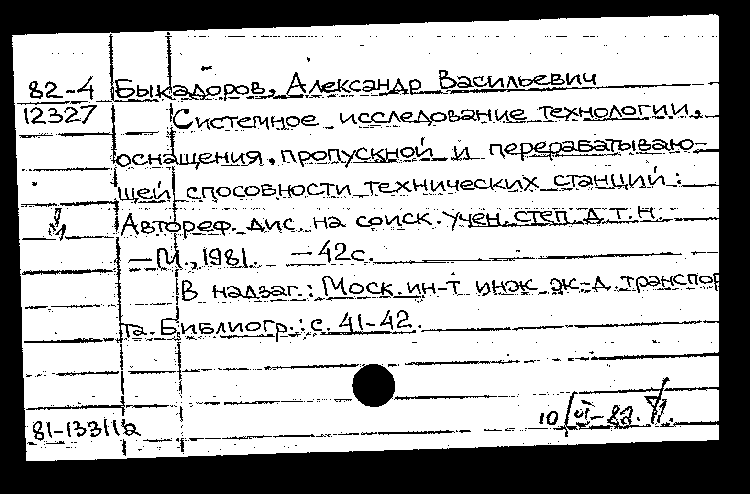 82-4 Быкадоров, Александр Васильевич
12327 Системное исследование технологии,
оснащения, пропускной и перерабатываю-
щей способности технических станций:
Автореф. дис. на соиск. учен. степ. д.т.н.
—М., 1981. — 42с.
В надзаг.: Моск. ин-т инж. ж.-д. транспор
та. Библиогр.: с. 41-42.
81-13311a
10/VI-82.